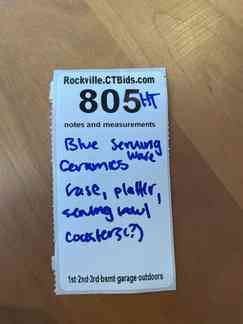 Rockville.CTBids.com
805 HT
notes and measurements
Blue Serving
Ware
Ceramics
Vase, platter,
serving bowl
coasters(?)
1st-2nd-3rd-bsmt-garage-outdoors